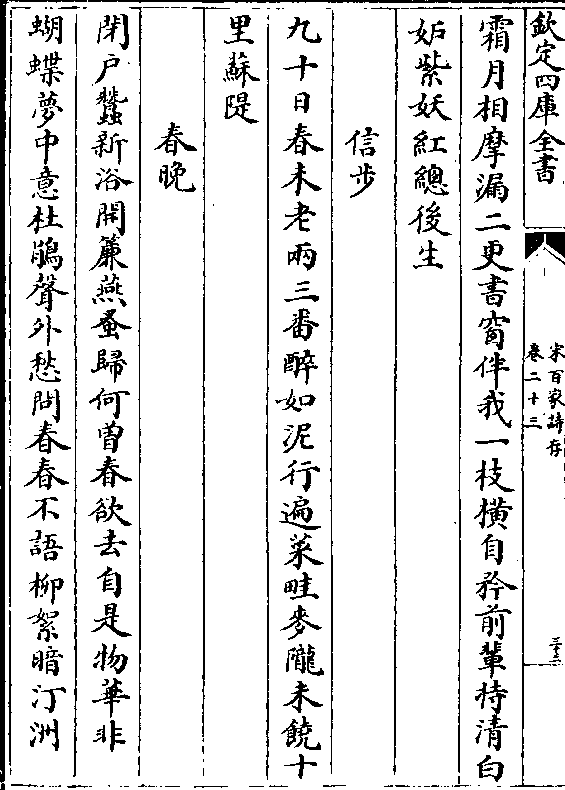 欽定四庫全書
宋百家詩存
卷二十三
三十二
霜月相摩漏二更書窗伴我一枝横自矜前輩持清白
妬紫妖紅總後生
信步
九十日春未老兩三番醉如泥行遍菜畦麥隴未饒十
里蘇隄
春晚
閉户蠶新浴開簾燕蚤歸何曽春欲去自是物華非
蝴蝶夢中意杜鵑聲外愁問春春不語柳絮暗汀洲